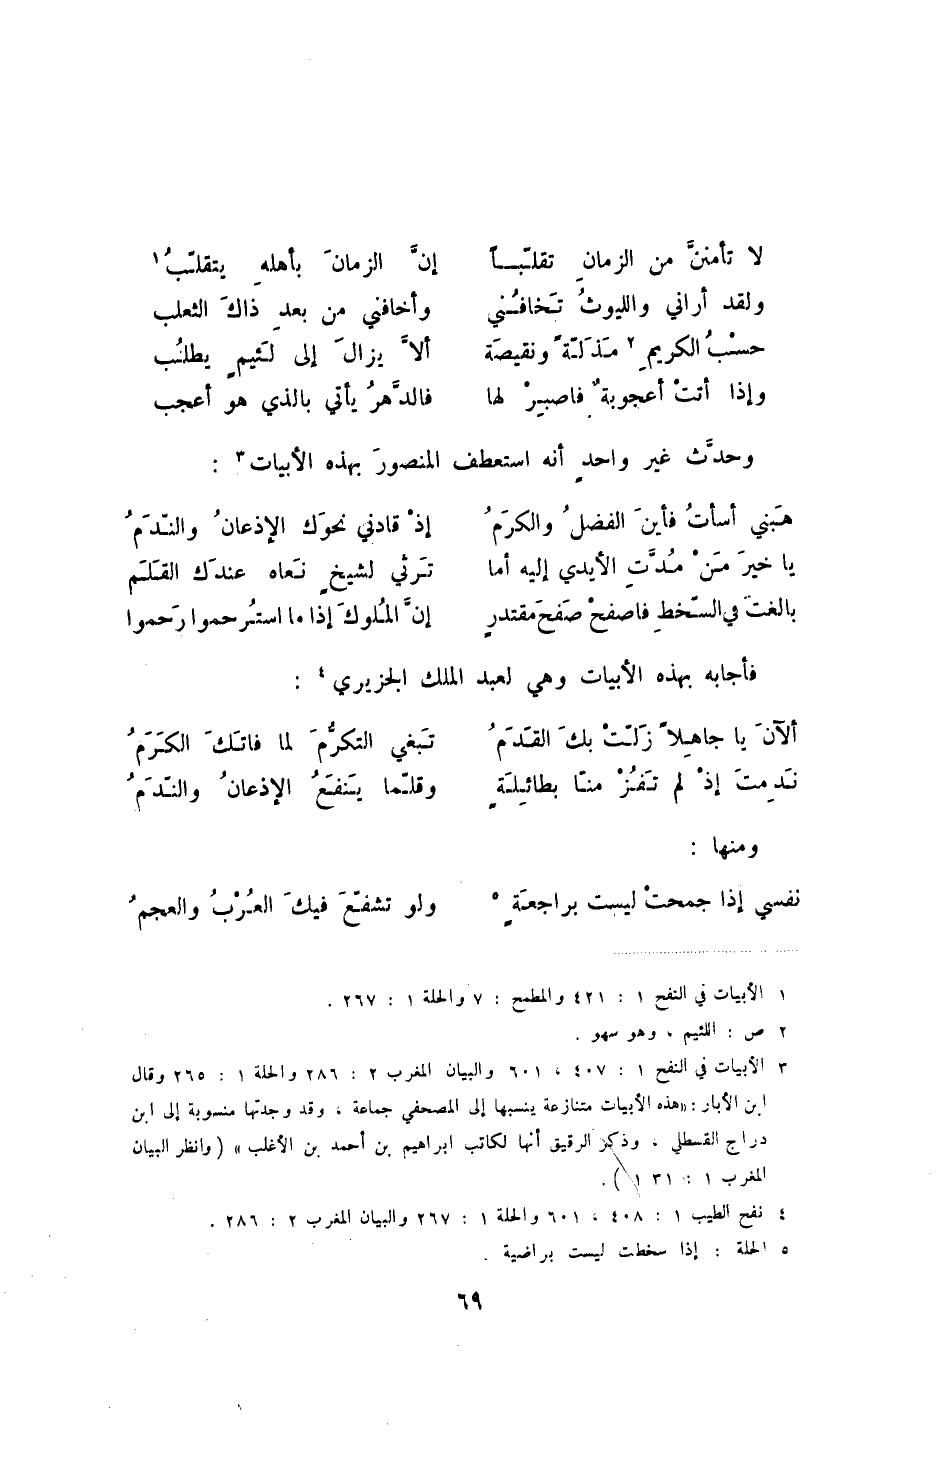 لا تأمننَّ من الزمانِ تقلّبـــاً إنَّ الزمانَ بأهلهِ يتقلّبُ١
ولقد أراني والليوثُ تَخافُني وأخافني من بعدِ ذاكَ الثعلب
حسْبُ الكريمِ ٢ مَذلّةً ونقيصَة ألاَّ يزالَ إلى لَئيمٍ يطلُب
وإذا أتتْ أعجوبةٌ فاصبِرْ لها فالدَّهرُ يأتي بالذي هو أعجب
وحدَّث غير واحدٍ أنه استعطف المنصورَ بهذه الأبيات٣ :
هَبني أسأتُ فأينَ الفضلُ والكرَمُ إذْ قادني نحوَك الإذعانُ والنّدَمُ
يا خيرَ مَنْ مُدَّتِ الأيدي إليه أما تَرثي لشيخٍ نَعاه عندَك القَلَم
بالغتَ في السّخطِ فاصفحْ صَفحَ مقتدرٍ إنَّ المُلوكَ إذا ما استُرحموا رَحموا
فأجابه بهذه الأبيات وهي لعبد الملك الجزيري ٤ :
ألآنَ يا جاهِلاً زَلّتْ بكَ القَدَمُ تَبغي التكرُّمَ لما فاتَكَ الكَرَمُ
نَدِمتَ إذْ لم تَفُزْ منّا بطائِلَةٍ وقلّما يَنفَعُ الإذعانُ والنّدَمُ
ومنها :
نفسي إذا جمحتْ ليست براجعَةٍ ٥ ولو تشفّعَ فيكَ العُرْبُ والعجمُ
١ الأبيات في النفح ١ : ٤٢١ والمطمح : ٧ والحلة ١ : ٢٦٧ .
٢ ص : اللئيم ، وهو سهو .
٣ الأبيات في النفح ١ : ٤٠٧ ، ٦٠١ والبيان المغرب ٢ : ٢٨٦ والحلة ١ : ٢٦٥ وقال
ابن الأبار : «هذه الأبيات متنازعة ينسبها إلى المصحفي جماعة ، وقد وجدتها منسوبة إلى ابن
دراج القسطلي ، وذكر الرقيق أنها لكاتب ابراهيم بن أحمد بن الأغلب » ( وانظر البيان
المغرب ١ : ١٣١ ) .
٤ نفح الطيب ١ : ٤٠٨ ، ٦٠١ والحلة ١ : ٢٦٧ والبيان المغرب ٢ : ٢٨٦ .
٥ الحلة : إذا سخطت ليست براضية .
٦٩